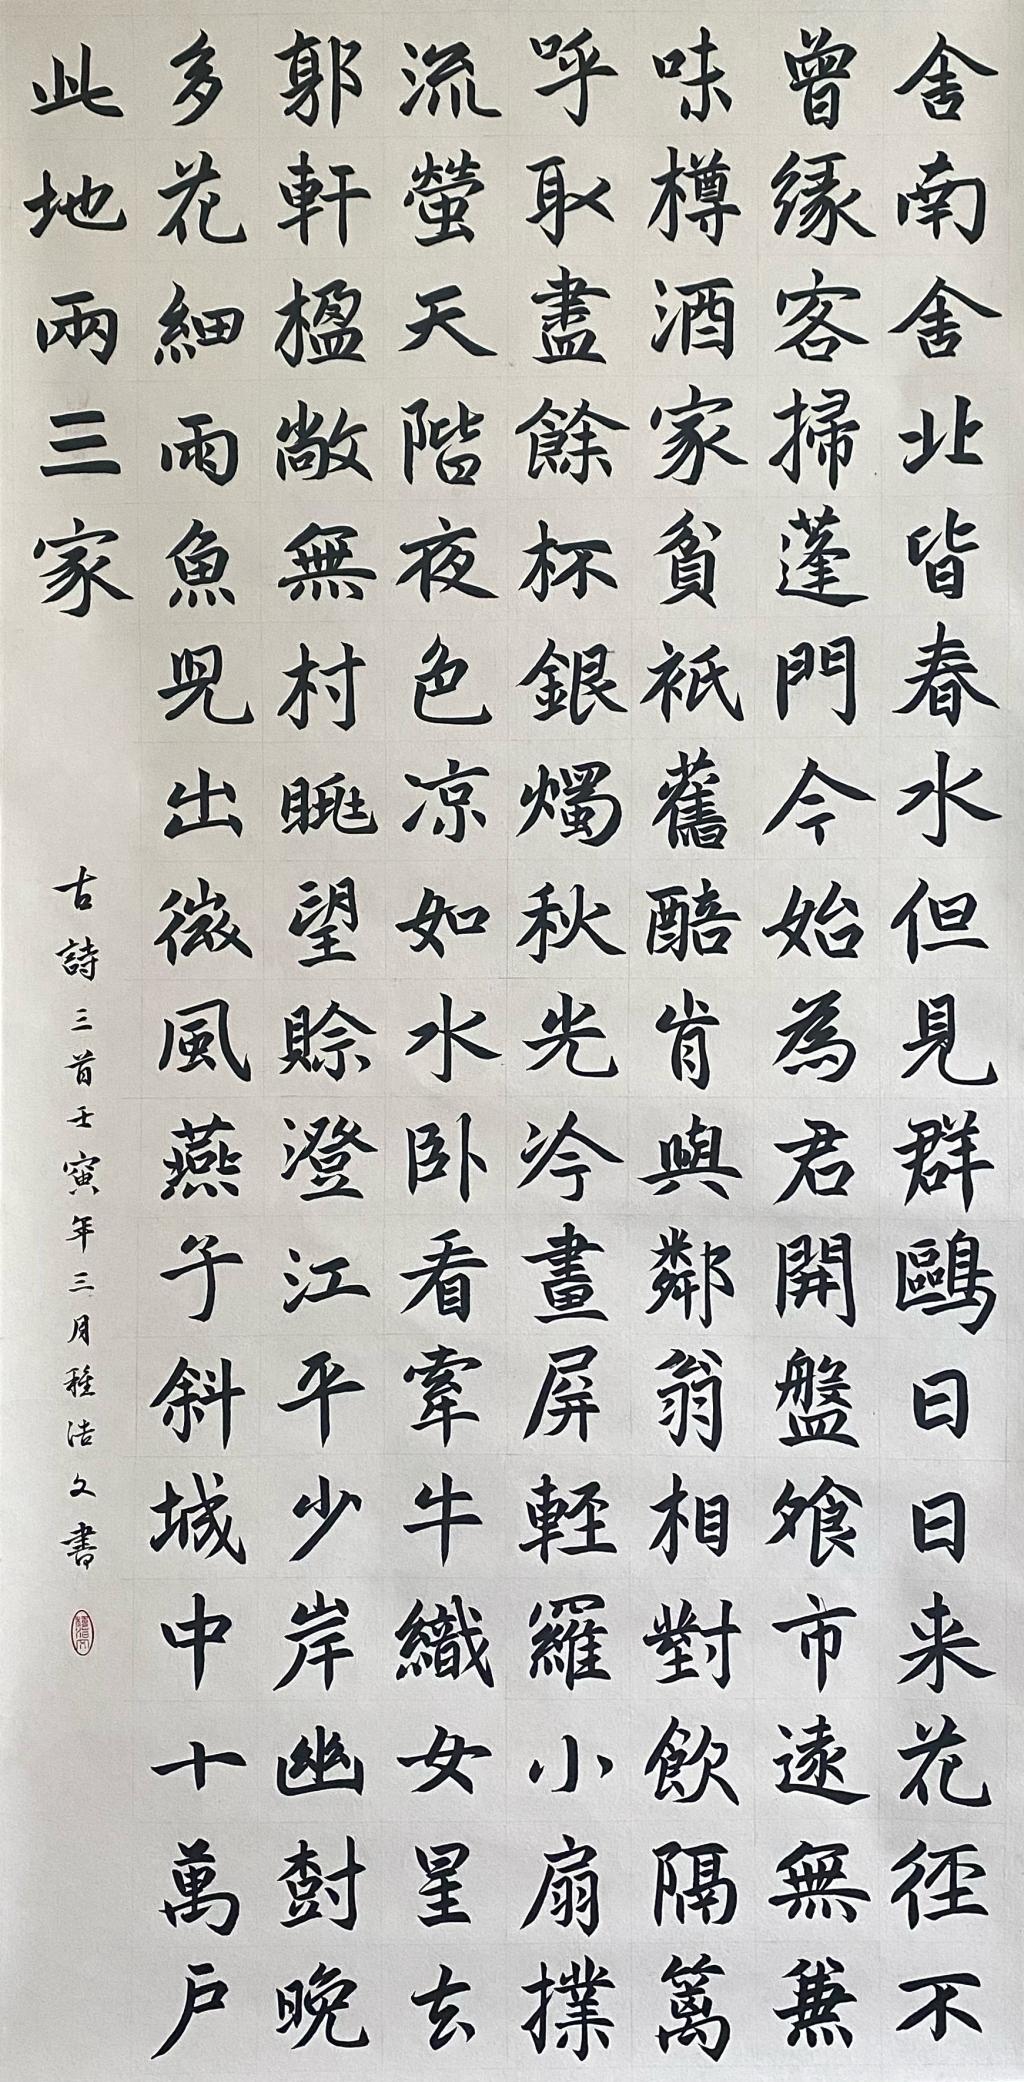 舍南舍北皆春水但見群鷗日日来花徑不
曾緣客掃蓬門今始為君開盤飧市遠無兼
味樽酒家貧祇舊醅肯與鄰翁相對飲隔篱
呼取盡餘杯銀燭秋光冷畫屏輕羅小扇撲
流螢天階夜色凉如水卧看牽牛織女星去
郭軒楹敞無村眺望賒澄江平少岸幽樹晚
多花細雨魚兒出微風燕子斜城中十萬戶
此地兩三家
古詩三首壬寅年三月文書